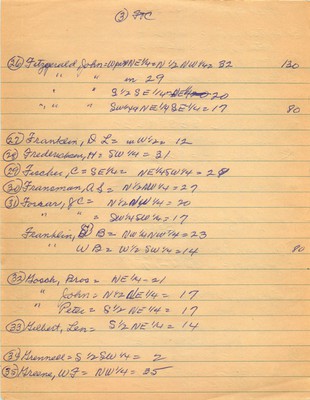 ③ FTC
㉖ Fitzgerald, John = NE¼ + N½ NW¼ = 32 130
" " " in 29
" " " S½ SE¼ 20
" " " SW¼ NE¼ SE¼ = 17 80
㉗ Franklin, D L = W½ = 12
㉘ Frederickson, H = SW¼ = 31
㉙ Fischer, C = SE¼ = NE¼ SW¼ = 28
㉚ Fransman, A S = N½ NW¼ = 27
㉛ Forcar, J C = N½ NW¼ = 20
" " = SW¼ SW¼ = 17
Franklin, B = NW¼ NW¼ = 23
" W B = W½ SW¼ = 14 80
㉜ Gosch, Bros = NE¼ - 21
" John = N½ NE¼ = 17
" Peter = S½ NE¼ = 17
㉝ Gilbert, Len = S½ NE¼ = 14
㉞ Grennell = S½ SW¼ = 2
㉟ Greene, W F = NW¼ = 35